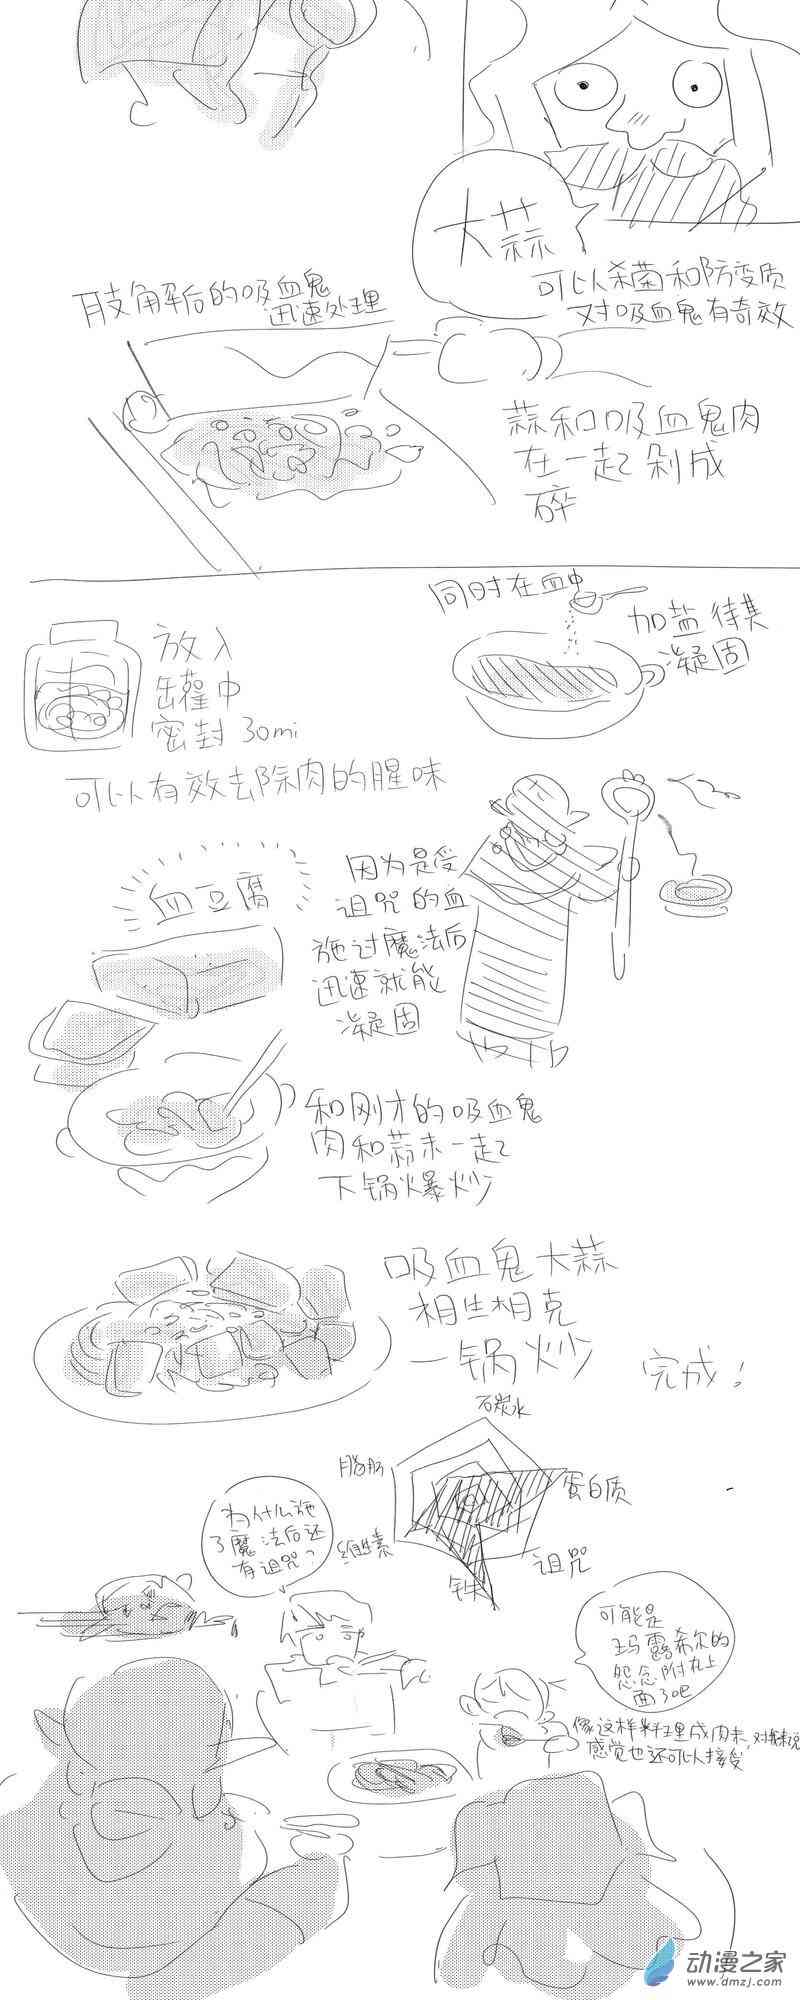 大蒜
可以杀菌和防变质
对吸血鬼有奇效
肢解后的吸血鬼
迅速处理
蒜和吸血鬼肉
在一起剁成
碎
同时在血中
加盐待其
凝固
放入
罐中
密封30mi
可以有效去除肉的腥味
血豆腐
因为是受
诅咒的血
施过魔法后
迅速就能
凝固
和刚才的吸血鬼
肉和蒜末一起
下锅爆炒
吸血鬼大蒜
相生相克
一锅炒
完成！
石炭水
脂肪
蛋白质
维生素
诅咒
为什么施
了魔法后还
有诅咒？
可能是
玛露希尔的
怨念附在上
面了吧
像这样料理成肉末，对我来说
感觉也还可以接受
动漫之家
www.dmzj.com